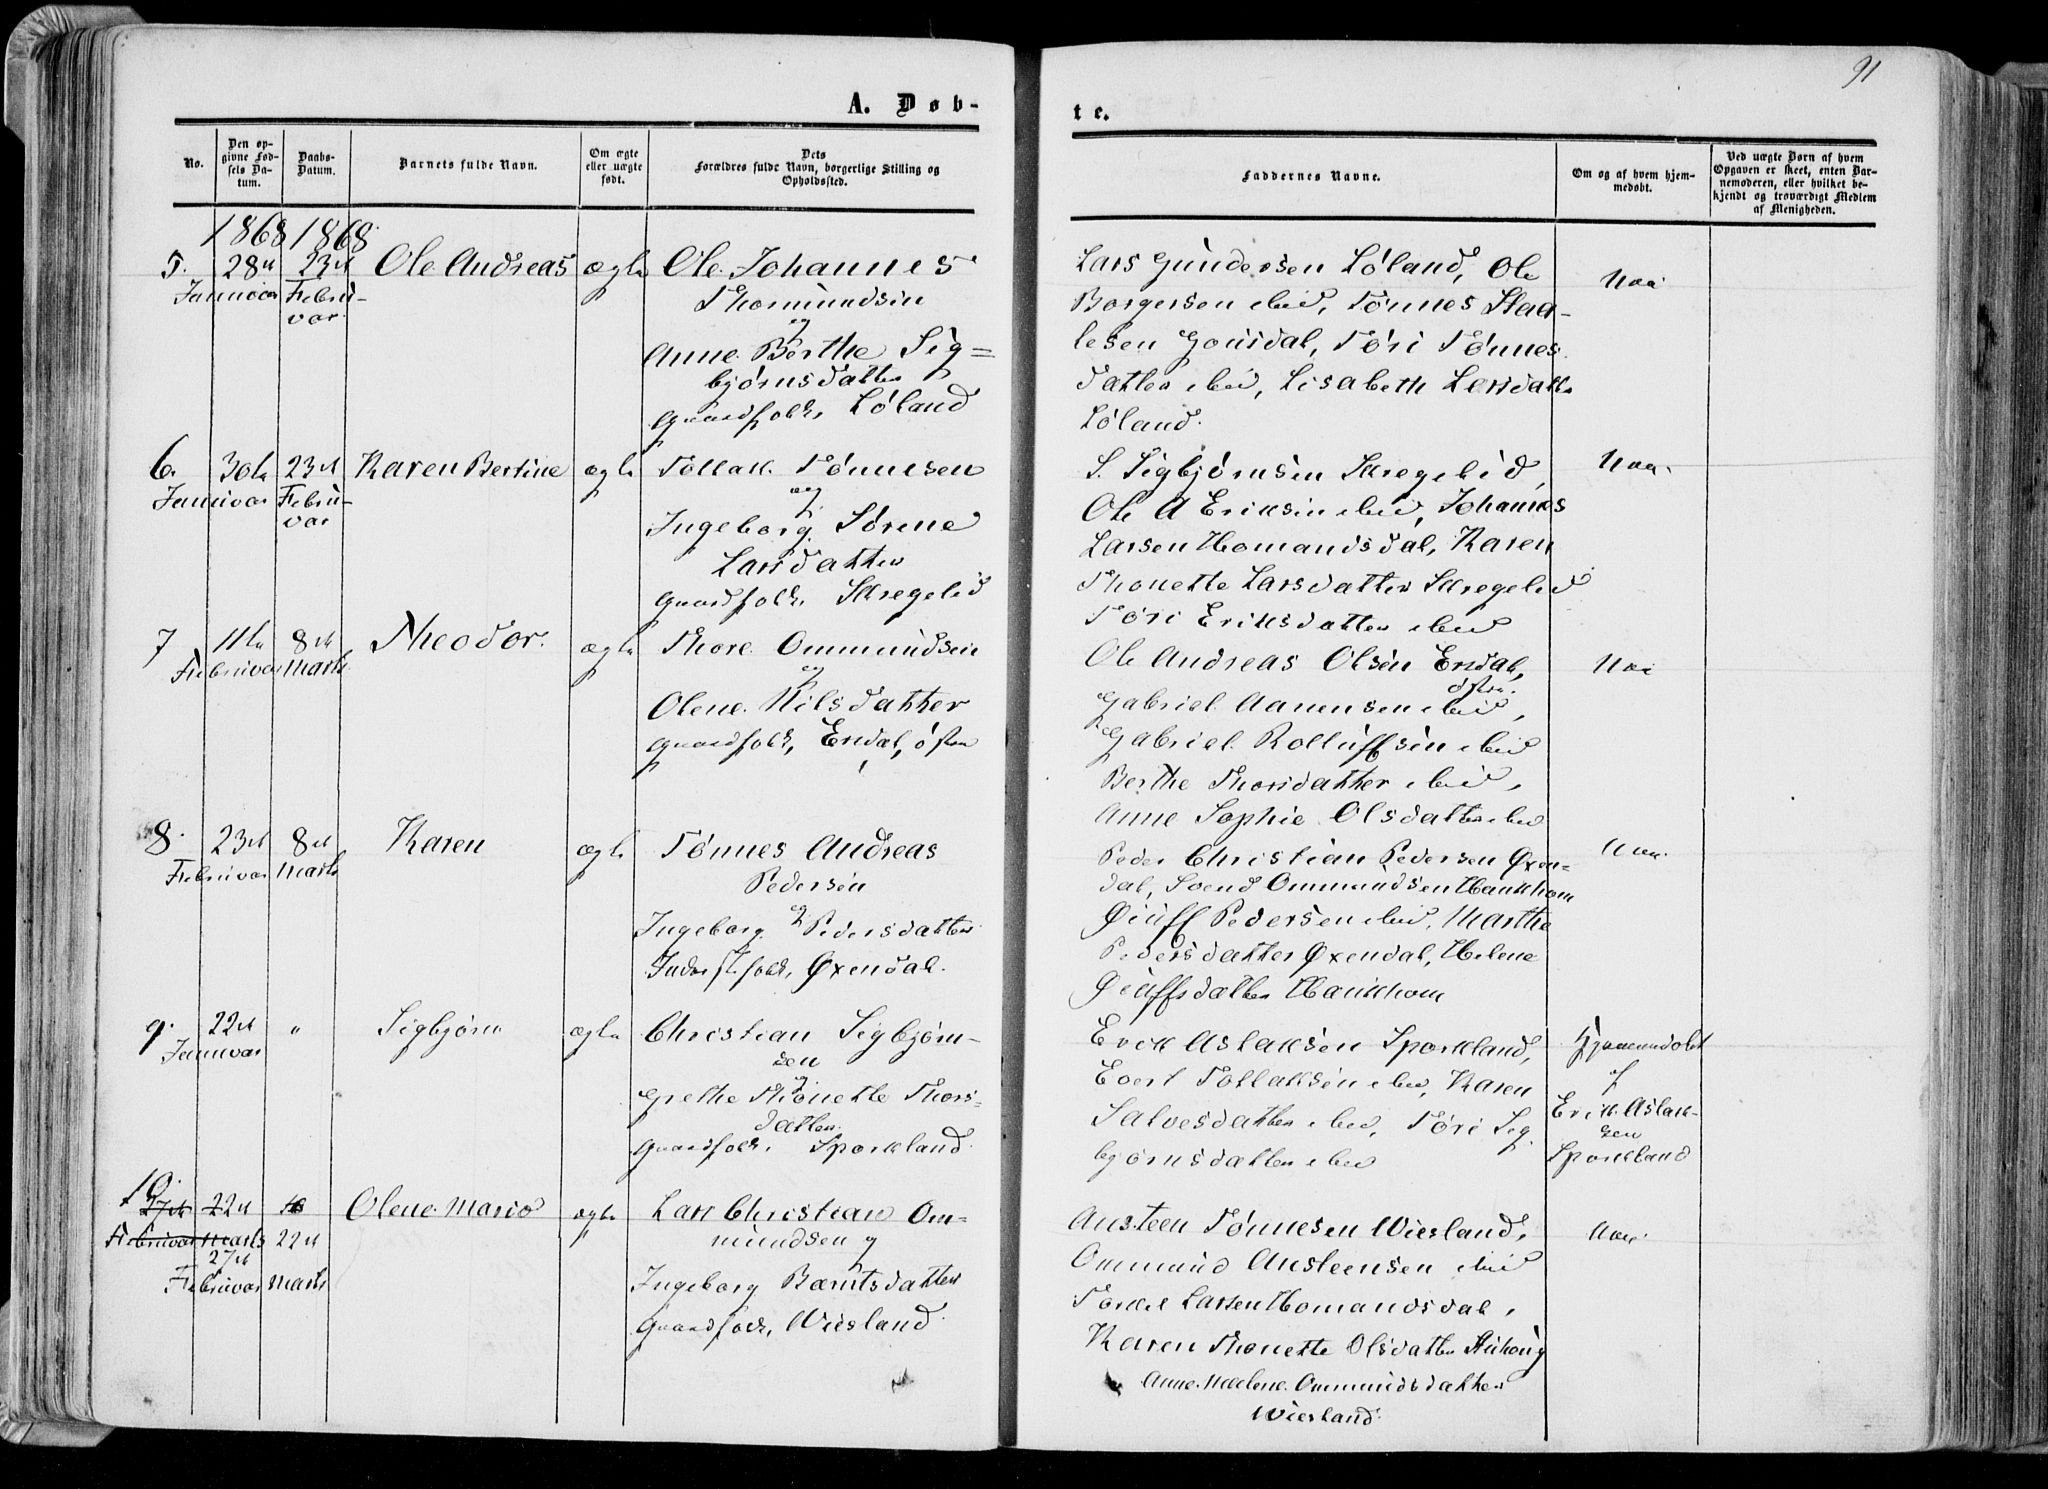 91
A. Døb-
te.
No.
Den op-
givne Fød-
sels Da-
tum.
Daabs-
Datum.
Barnets fulde Navn.
Om ægte
eller uægte
født.
Dets
Forældres fulde Navn, borgerlige Stilling og
Opholdssted.
Faddernes Navne.
Om og af hvem hjem-
medøbt.
Ved uægte Børn af hvem
Opgaven er skeet, enten Bar-
nemoderen, eller hvilket be-
kjendt og troværdigt Medlem
af Menigheden.
1868 1868
5. 28de Januvar
23de Februvar
Ole Andreas
ægte
Ole Johannes
Thomundsen
og
Anne Berthe Sig=
bjørnsdatter
Gaardfolk, Løland
Lars Gundersen Løland, Ole
Borgersen ibid, Tønnes Staa-
lesen Gousdal, Tøri Tønnes
datter ibid, Lisabeth Larsdatter
Løland.
Nei
6. 30te Januvar
23de Februvar
Karen Bertine
ægte
Tollak Tønnesen
og
Ingeborg Sørene
Larsdatter
Gaardfolk, Skregelid
S. Sigbjørnsen Skregelid,
Ole A Eriksen ibid, Johannes
Larsen Homandsdal, Karen
Thonette Larsdatter Skregelid
Tøri Eriksdatter ibid
Nei
7 11te Februvar
8de Marts
Theodor.
ægte
Thore Ommundsen
og
Olene Nilsdatter
Gaardfolk, Ersdal, østre
Ole Andreas Olsen Ersdal,
østre.
Gabriel Aanensen ibid,
Gabriel Rolluffsen ibid
Berthe Thorsdatter ibid,
Anne Sophie Olsdatter ibid
Nei
8. 23de Februvar
8de Marts
Karen
ægte
Tønnes Andreas
Pedersen
og
Ingeborg Pedersdatter
Inderstfolk, Øxendal.
Peder Christian Pedersen Øxen-
dal, Svend Ommundsen Haukhom
Øiuff Pedersen ibid, Marthe
Pedersdatter Øxendal, Helene
Øiuffsdatter Haukhom
Nei
9. 22de Januvar
"
Sigbjørn
ægte
Christian Sigbjørn-
sen
og
Grethe Thonette Thors=
datter
Gaardfolk, Sporkland.
Erik Aslaksen Sporkland,
Evert Tollaksen ibid, Karen
Salvesdatter ibid, Tøri Sig
bjørnsdatter ibid
Hjemmedøbt
f
Erik Aslak-
sen
Sporkland
10.
27de 22de
Februvar Marts
27de Februvar
22de Marts
Olene Marie
ægte
Lars Christian Om-
mundsen og
Ingeborg Berntsdatter
Gaardfolk, Wiesland.
Austeen Tønnesen Wiesland,
Ommund Austeensen ibid
Torkel Larsen Homandsdal,
Karen Thonette Olsdatter
Anne Malene Ommundsdatter
Wiesland.
Nei